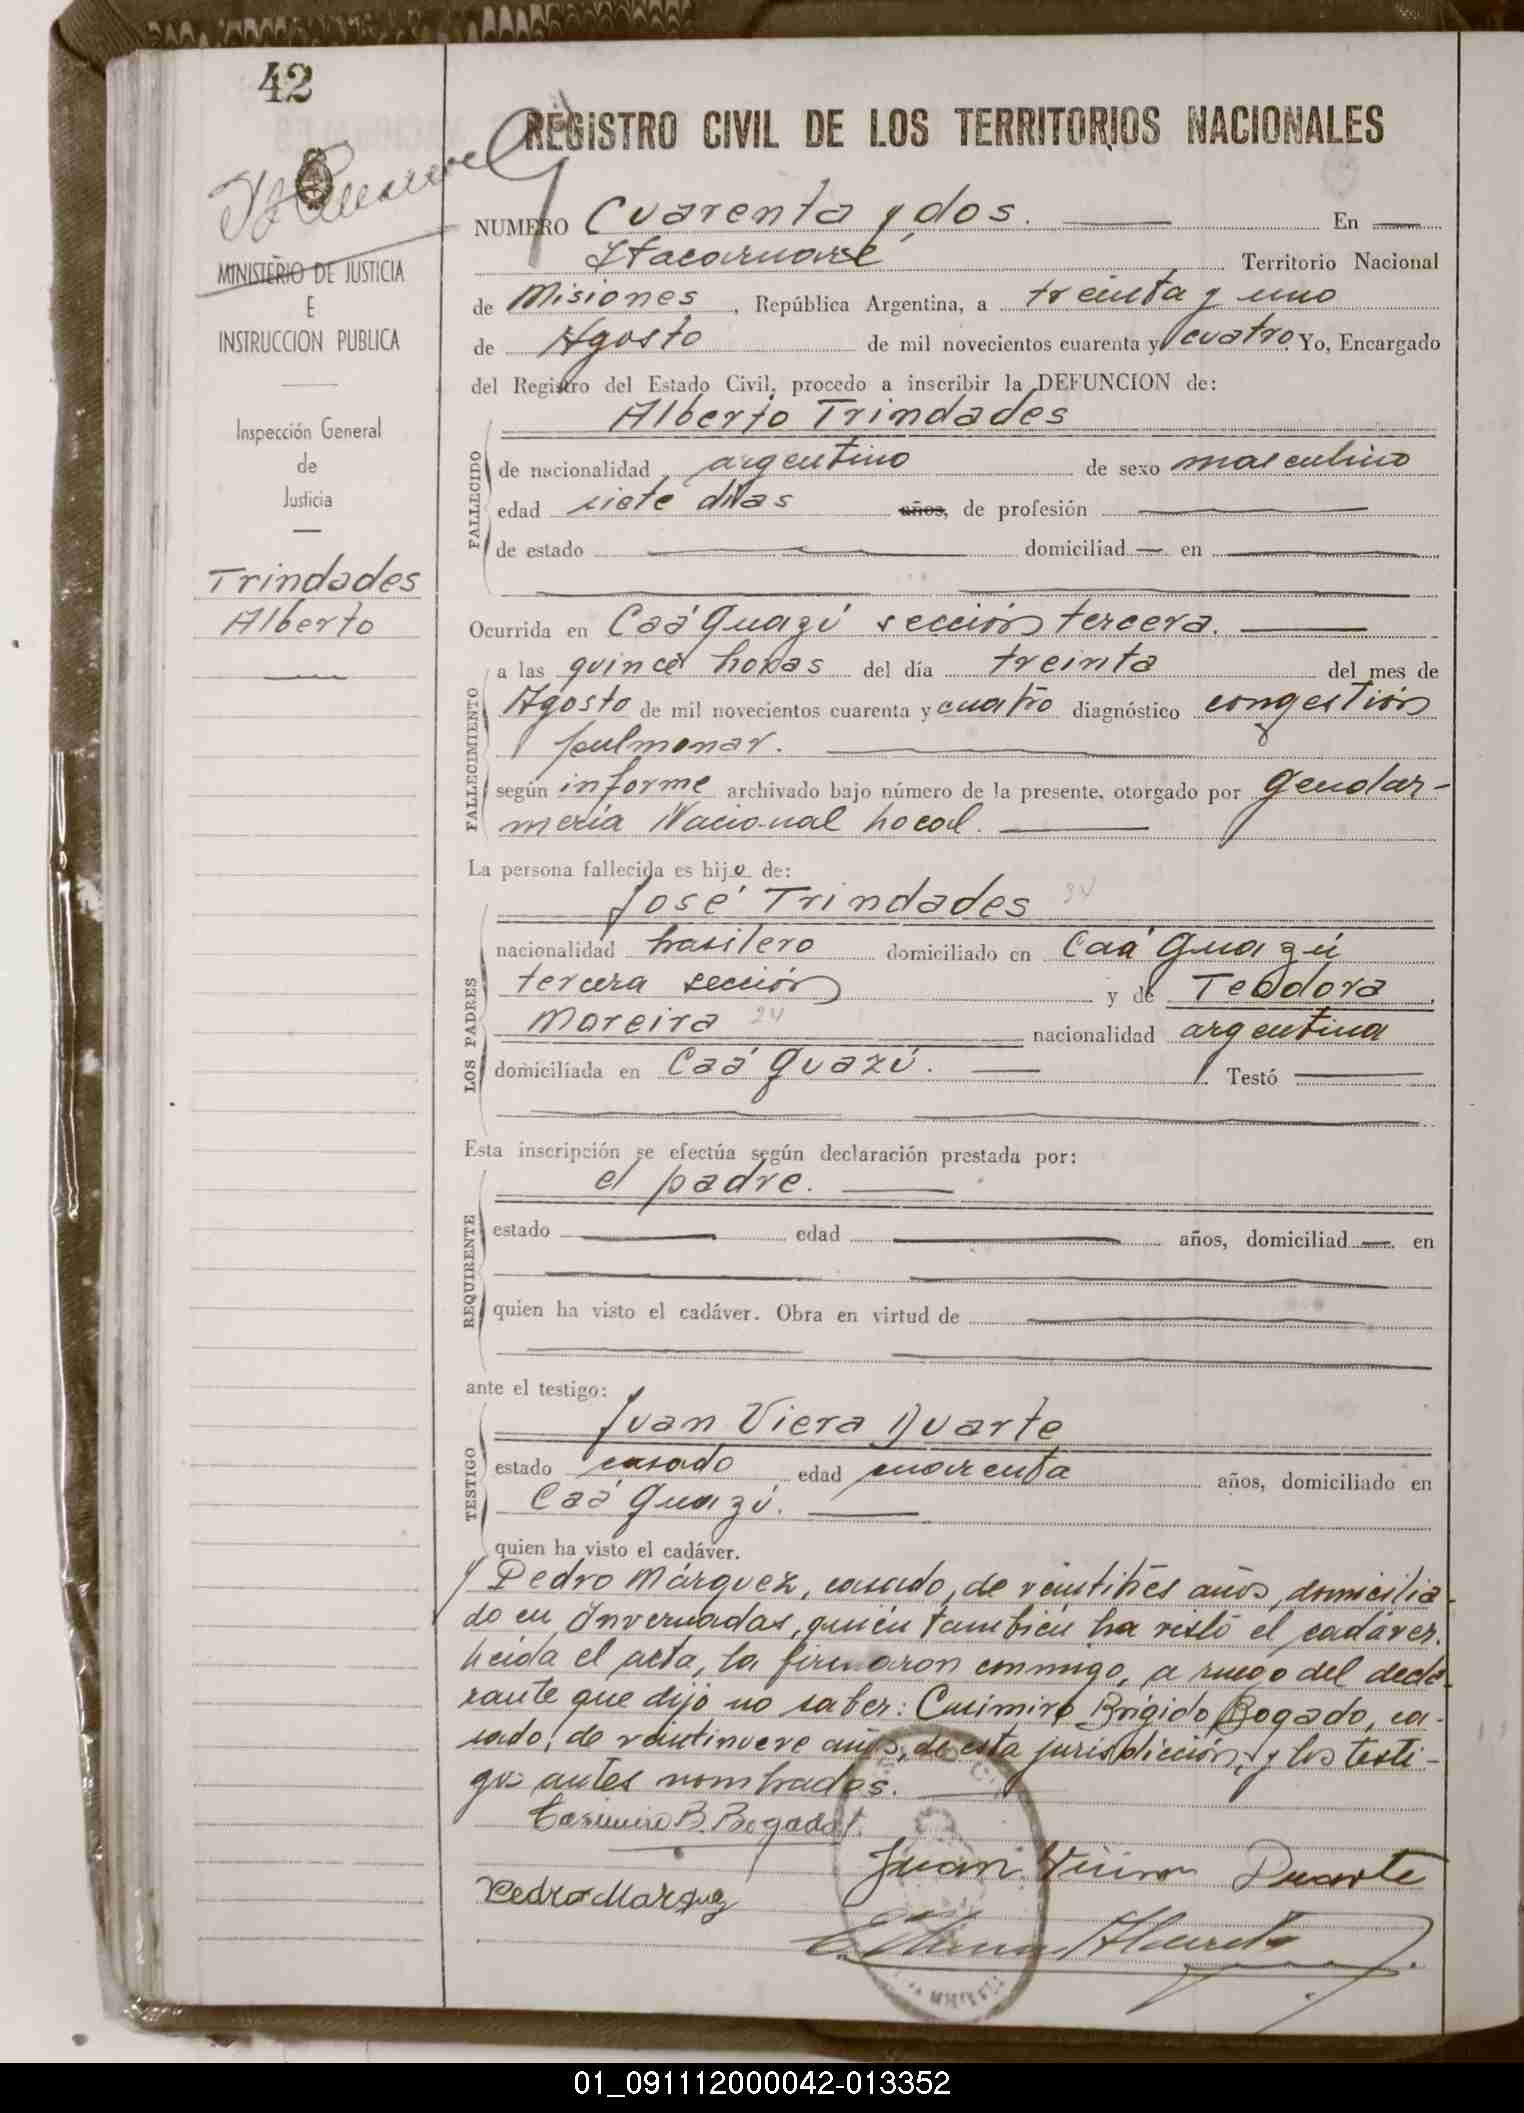 42
REGISTRO CIVIL DE LOS TERRITORIOS NACIONALES
NUMERO Cuarenta y dos. En
Itacaruaré Territorio Nacional
de Misiones, República Argentina, a treinta y uno
de Agosto de mil novecientos cuarenta y cuatro. Yo, Encargado
del Registro del Estado Civil, procedo a inscribir la DEFUNCION de:
MINISTERIO DE JUSTICIA
E
INSTRUCCION PUBLICA
Inspección General
de
Justicia
Trindades
Alberto
FALLECIDO
Alberto Trindades
de nacionalidad argentino de sexo masculino
edad siete días años, de profesión
de estado domiciliad en
Ocurrida en Caá Guazú sección tercera.
FALLECIMIENTO
a las quince horas del día treinta del mes de
Agosto de mil novecientos cuarenta y cuatro diagnóstico congestión
pulmonar.
según informe archivado bajo número de la presente, otorgado por Gendar-
mería Nacional Local.
La persona fallecida es hijo de:
LOS PADRES
José Trindades 34
nacionalidad brasilero domiciliado en Caá Guazú
tercera sección y de Teodora
Moreira 24 nacionalidad argentina
domiciliada en Caá Guazú. Testó
Esta inscripción se efectúa según declaración prestada por:
REQUIRENTE
el padre.
estado edad años, domiciliad en
quien ha visto el cadáver. Obra en virtud de
ante el testigo:
TESTIGO
Juan Viera Duarte
estado casado edad cuarenta años, domiciliado en
Caá Guazú.
quien ha visto el cadáver.
y Pedro Márquez, casado, de veintitrés años, domicilia-
do en Invernadas, quién también ha visto el cadáver.
Leída el acta, la firmaron conmigo, a ruego del decla-
rante que dijo no saber: Casimiro Brígido Bogado, ca-
sado, de veintinueve años, de esta jurisdicción, y los testi-
gos antes nombrados.
Casimiro B. Bogado
Juan Viera Duarte
Pedro Marquez
01_091112000042-013352